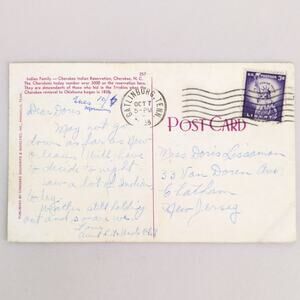 Indian Family — Cherokee Indian Reservation, Cherokee, N. C.
The Cherokees today number over 3000 on the reservation here.
They are descendants of those who hid in the Smokies when the
Cherokee removal to Oklahoma began in 1838.
GATLINBURG, TENN.
OCT 7
5-PM
U.S. POSTAGE
3¢
LIBERTY
POST CARD
Dear Doris
May not get
down as far as New
Orleans. Will have
to decide to night.
saw a lot of Indian
to day.
Weather still holding
out and so are we
Love
Miss Doris Lissaman
33 Van Doren Ave
Chatham
New Jersey